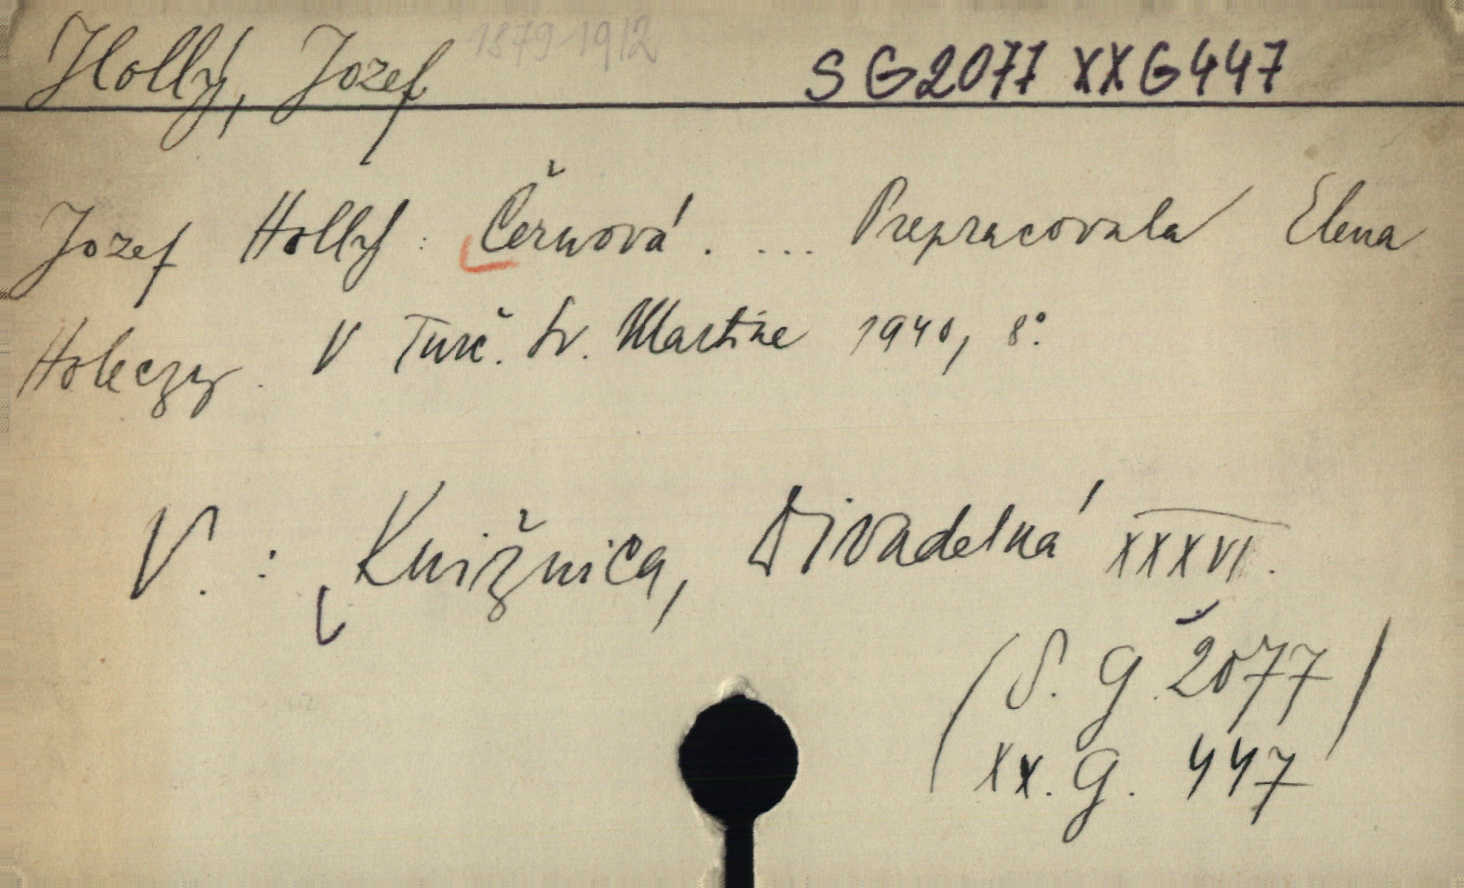 Hollý, Jozef 1879-1912 SG2077 XXG447
Jozef Hollý: Černová. ... Prepracovala Elena
Holéczy. V Turč. Sv. Martine 1940, 8°.
V.: Knižnica, Divadelná XXXVI.
(S. G. 2077)
XX. G. 447